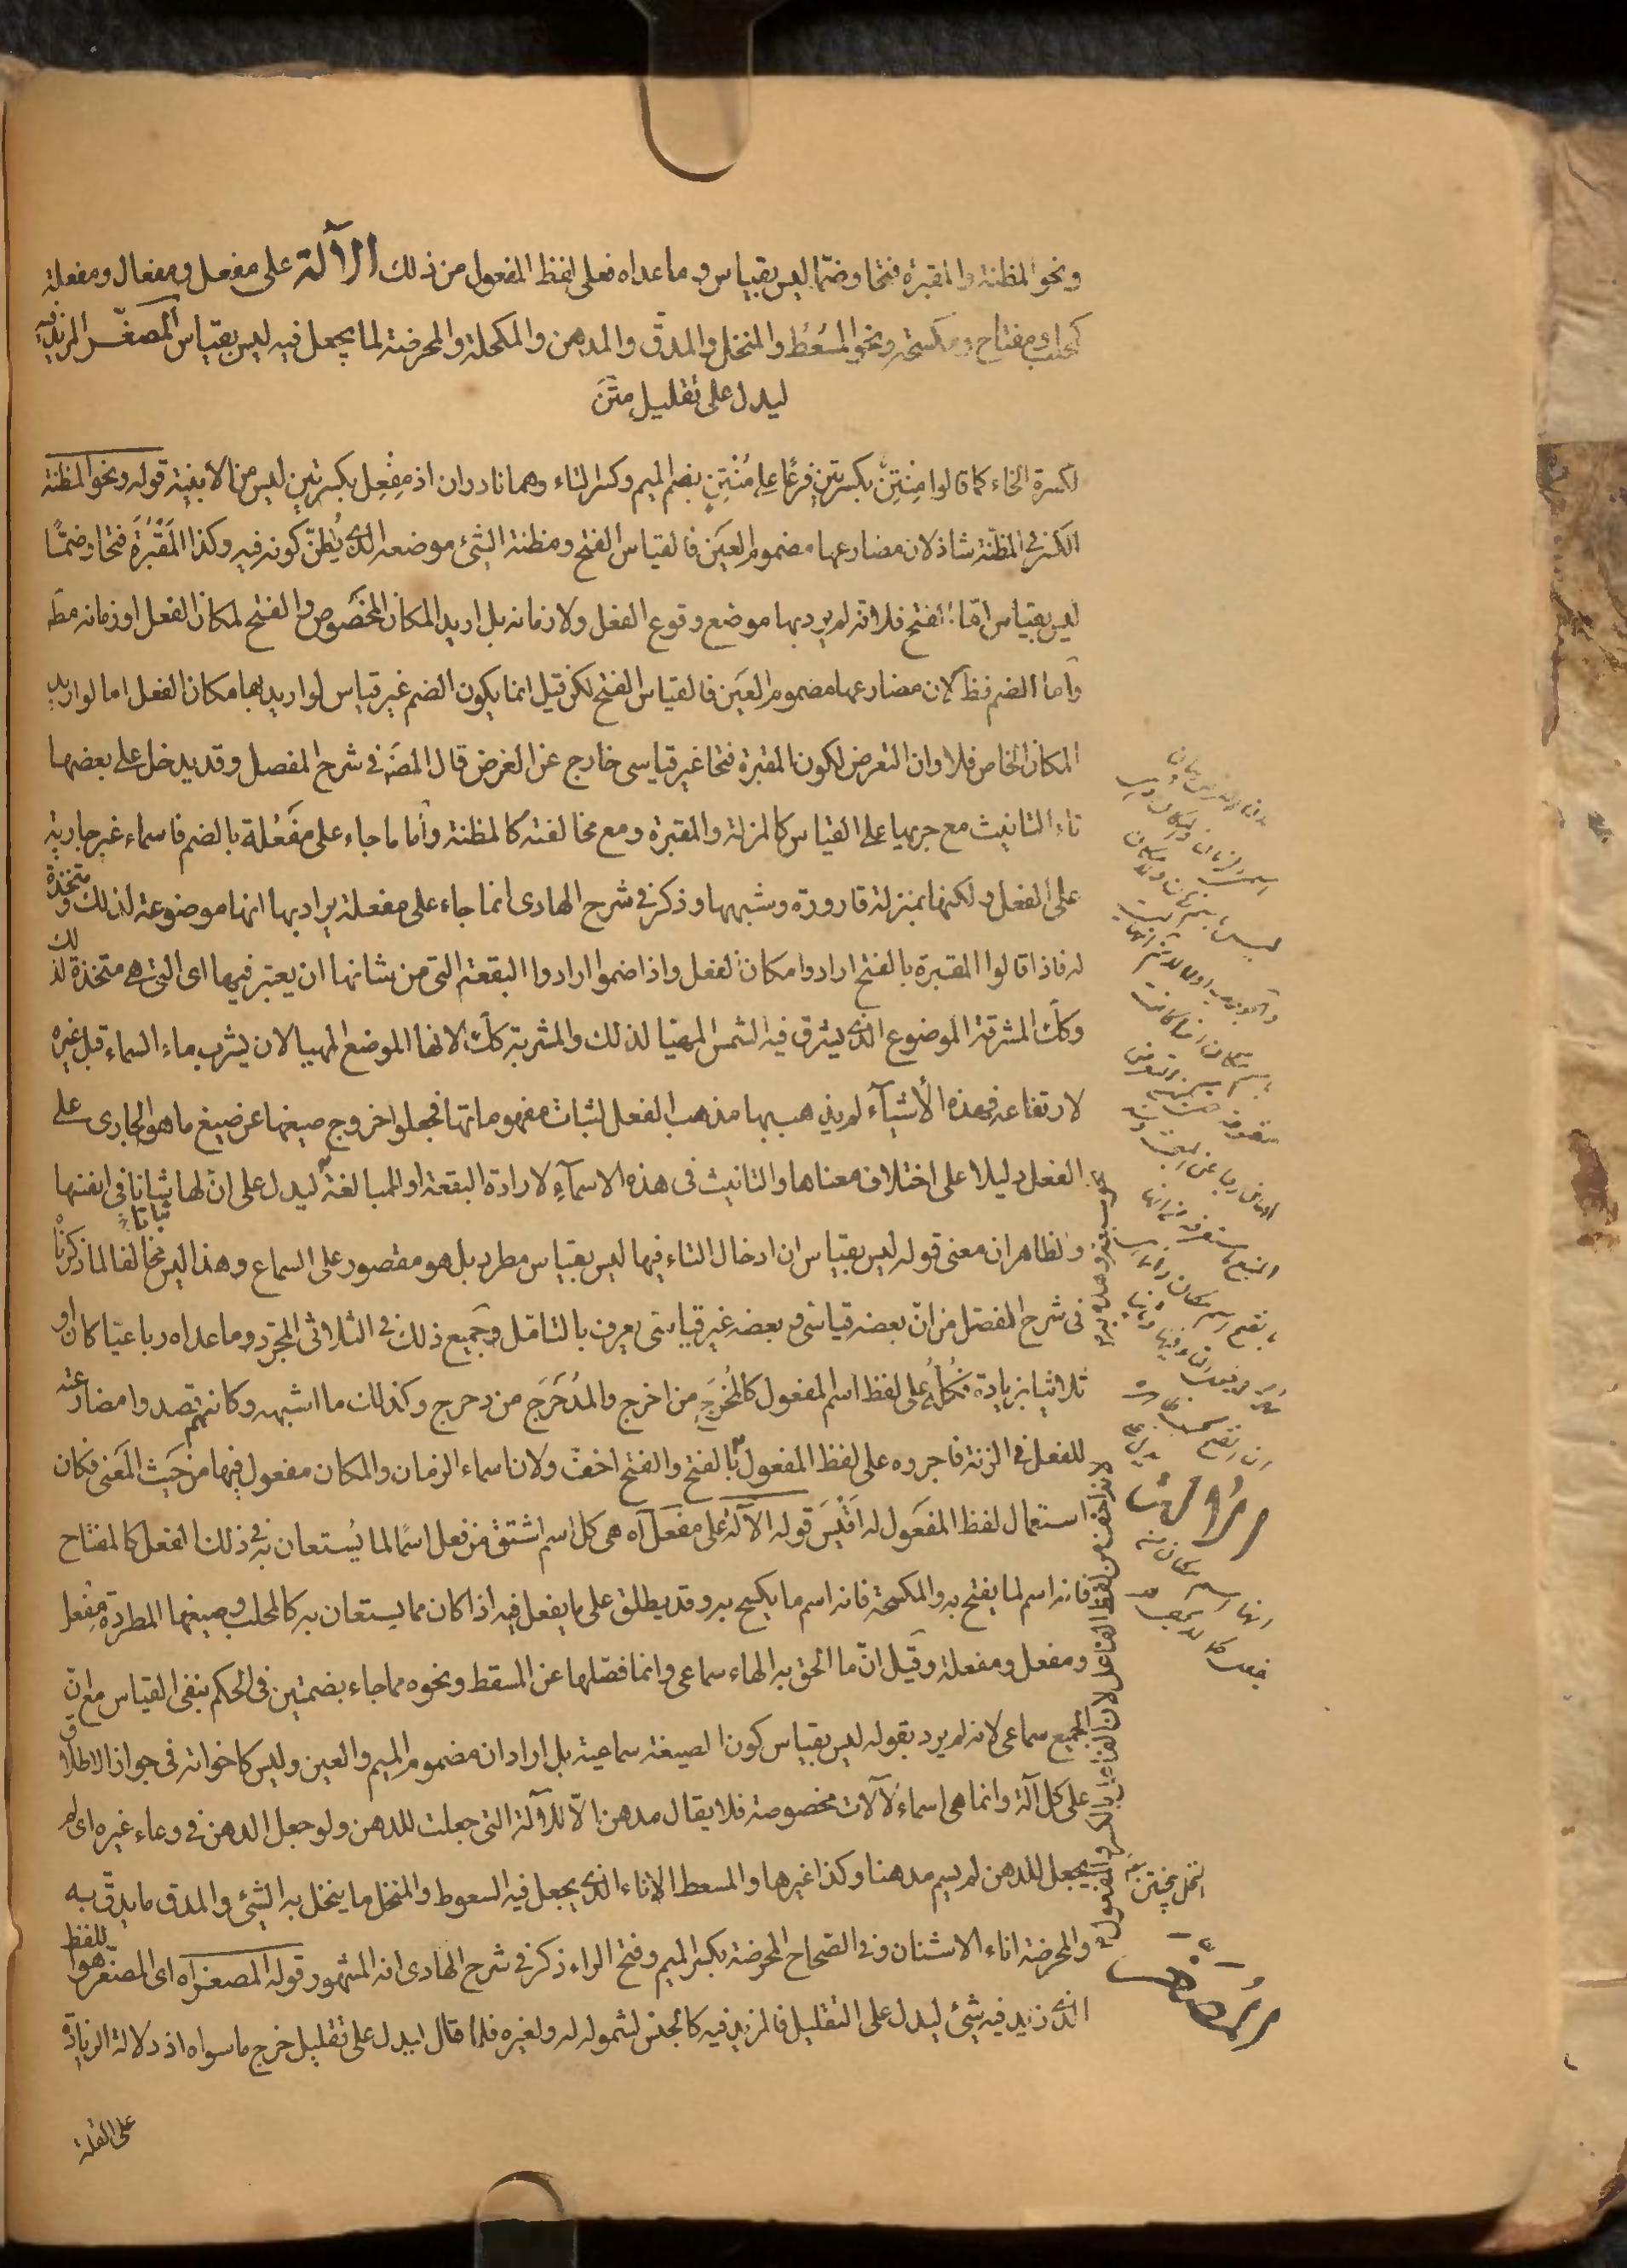 ونحو المظنة والمقبرة فتحا وضما ليس بقياس وما عداه فعلى لفظ المفعول من ذلك الآلة على مفعل ومفعال ومفعلة
كمحلب ومفتاح ومكسحة ونحو المُسْعُط والمنخل والمدقّ والمدهن والمكحلة والمحرضة لما يجعل فيه ليس بقياس المصغّر المزيد فيه
ليدل على تقليل متن
لكسرة الخاء كما قالوا مِنْتِنٌ بكسرتين فرعًا على مُنْتِنٍ بضم الميم وكسر التاء وهما نادران اذ مِفْعِل بكسرتين ليس من الابنية قوله ونحو المظنة
الكسر في المظنة شاذ لان مضارعها مضموم العين فالقياس الفتح ومظنة الشئ موضعه الذى يُظنّ كونه فيه وكذا المَقْبُرَة فتحا وضمّا
ليس بقياس امّا الفتح فلانه لم يرد بها موضع وقوع الفعل ولا زمانه بل اريد المكان المخصوص والفتح لمكان الفعل او زمانه مط
وأما الضم فظ لان مضارعها مضموم العين فالقياس الفتح لكن قيل انما يكون الضم غير قياس لو اريد بها مكان الفعل اما لو اريد
المكان الخاص فلا وان التعرض لكون المقبرة فتحا غير قياسى خارج عن الغرض قال المصَـ في شرح المفصل وقد يدخل على بعضها
تاء التانيث مع جريها على القياس كالمزلة والمقبرة ومع مخالفته كالمظنة وأما ما جاء على مَفْعُلة بالضم فاسماء غير جارية
على الفعل ولكنها بمنزلة قارورة وشبهها وذكر في شرح الهادى انما جاء على مفعلة يراد بها انها موضوعة لذلك ومتخذة
له فاذا قالوا المقبرة بالفتح ارادوا مكان الفعل واذا ضموا ارادوا البقعة التى من شانها ان يعتبر فيها اى التى هى متخذة لذلك
وكك المشرقة الموضوع الذى يشرق فيه الشمس المهيّا لذلك والمشربة كك لانها الموضع المهيا لان يشرب ماء السماء قبل غيره
لارتفاعه فهذه الأشيآء لم يذهب بها مذهب الفعل لثبات مفهوماتها فجعلوا خروج صيغها عن صيغ ما هو الجارى على
الفعل دليلا على اختلاف معناها والتانيث فى هذه الاسمآء لارادة البقعة او للمبالغة ليدل على انّ لها ثباتا فى انفسها
والظاهر ان معنى قوله ليس بقياس ان ادخال التاء فيها ليس بقياس مطرد بل هو مقصور على السماع وهذا ليس مخالفا لما ذكرنا
فى شرح المفصل من انّ بعضه قياسى وبعضه غير قياسى يعرف بالتامّل وجميع ذلك فى الثلاثى المجرّد وما عداه رباعيّا كان او
ثلاثيا بزيادة فكُلُّه على لفظ اسم المفعول كالمُخْرَجِ من اخرج والمُدَحْرَجِ من دحرج وكذلك ما اشبهه وكانهم قصدوا مضارعته
للفعل فى الزنة فاجروه على لفظ المفعول بالفتح والفتح اخفّ ولان اسماء الزمان والمكان مفعول فيها من حيث المعنى فكان
استعمال لفظ المفعول له اقْيَسَ قوله الآلة على مفعل آه هى كل اسم اشتق من فعل اسمًا لما يُستعان به فى ذلك الفعل كالمفتاح
فانه اسم لما يفتح به والمكسحة فانه اسم ما يكسح به وقد يطلق على ما يفعل فيه اذا كان مما يستعان به كالمحلب وصيغها المطردة مِفْعل
ومفعل ومفعلة وقيل انّ ما الحق به الهاء سماعى وانما فصلها عن المسقط ونحوه مما جاء بضمتين فى الحكم بنفى القياس مع انّ
الجميع سماعى لانه لم يرد بقوله ليس بقياس كون الصيغة سماعية بل اراد ان مضموم الميم والعين وليس كاخواته فى جواز الاطلاق
على كل آلة وانما هى اسماء لآلات مخصوصة فلا يقال مدهن الّا للآلة التى جعلت للدهن ولو جعل الدهن فى وعاء غيره اى لم
يجعل للدهن لم يسم مدهنا وكذا غيرها والمسعط الاناء الذى يجعل فيه السعوط والمنخل ما ينخل به الشئ والمدق ما يدقّ به
والمحرضة اناء الاشنان وفى الصحاح المحرضة بكسر الميم وفتح الراء ذكر فى شرح الهادى انه المشهور قوله المصغراه اى المصغّر هو اللفظ
الذى زيد فيه شئ ليدل على التقليل فالمزيد فيه كالجنس لشموله له ولغيره فلما قال ليدل على تقليل خرج ما سواه اذ دلالة الزيادة
على القلة
لانه اخف من لفظ الفاعل لان الفاعل بالكسر والمفعول